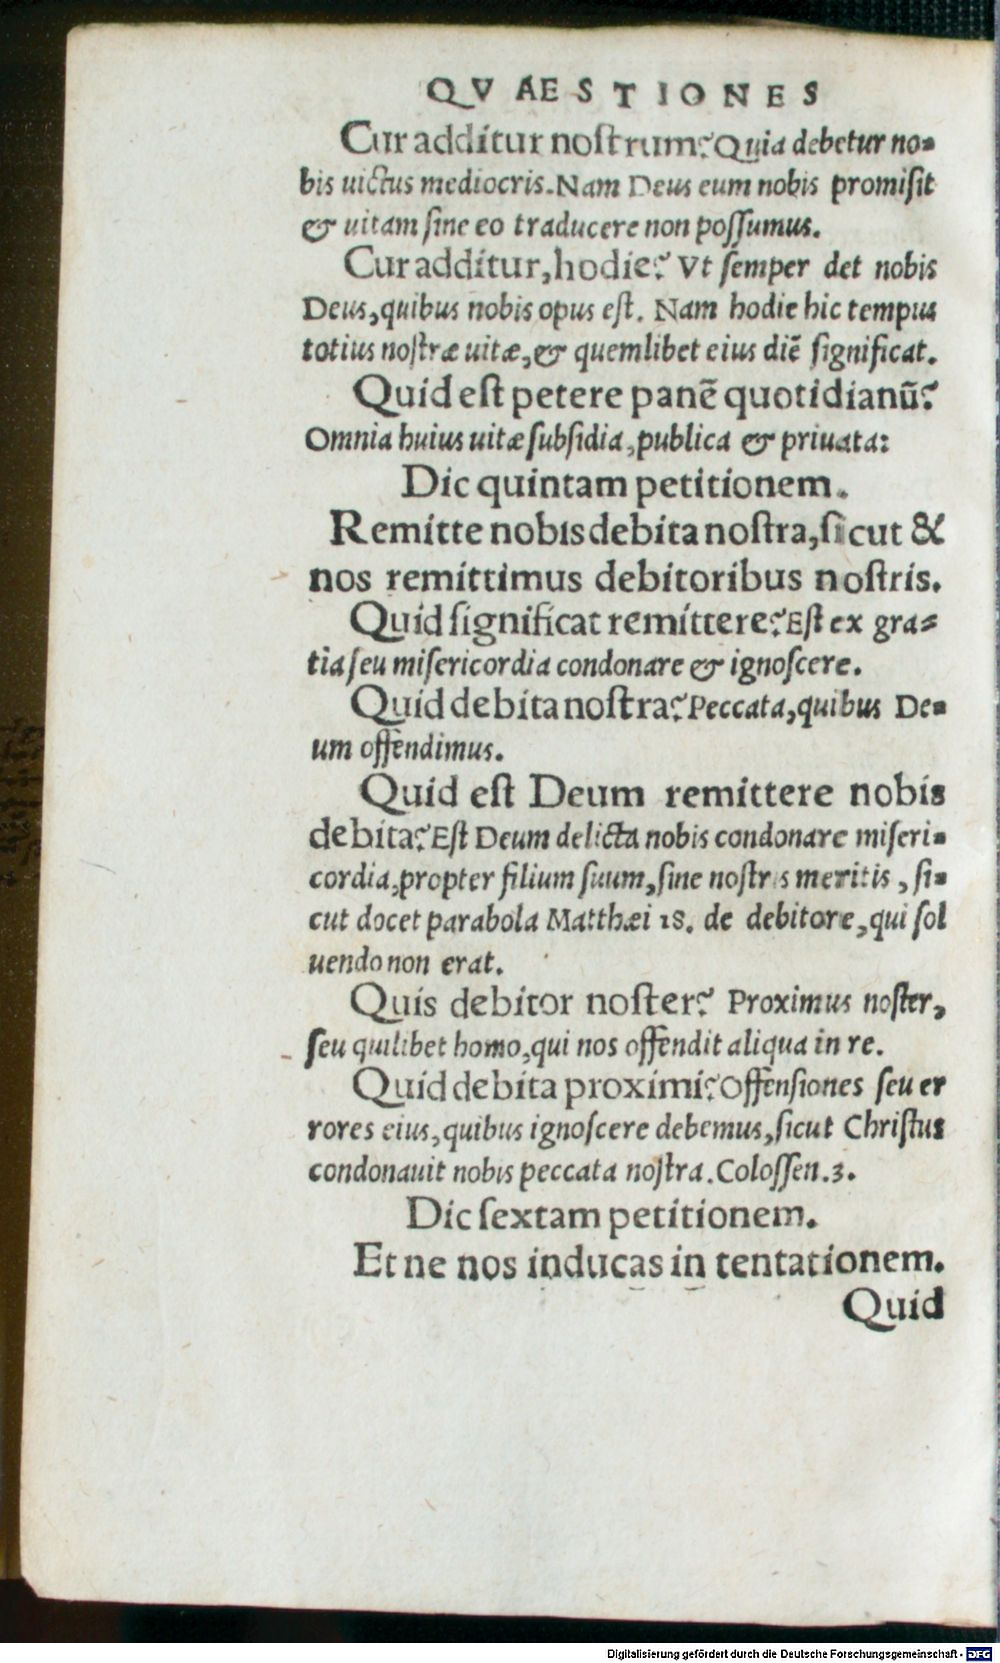 QVAESTIONES
Cur additur nostrum? Quia debetur no-
bis uictus mediocris. Nam Deus eum nobis promisit
& uitam sine eo traducere non possumus.
Cur additur, hodie? Vt semper det nobis
Deus, quibus nobis opus est. Nam hodie hic tempus
totius nostræ uitæ, & quemlibet eius diē significat.
Quid est petere panē quotidianū?
Omnia huius uitæ subsidia, publica & priuata:
Dic quintam petitionem.
Remitte nobis debita nostra, sicut &
nos remittimus debitoribus nostris.
Quid significat remittere? Est ex gra-
tia seu misericordia condonare & ignoscere.
Quid debita nostra? Peccata, quibus De-
um offendimus.
Quid est Deum remittere nobis
debita? Est Deum delicta nobis condonare miseri-
cordia, propter filium suum, sine nostris meritis, si-
cut docet parabola Matthæi 18. de debitore, qui sol
uendo non erat.
Quis debitor noster? Proximus noster,
seu quilibet homo, qui nos offendit aliqua in re.
Quid debita proximi? Offensiones seu er
rores eius, quibus ignoscere debemus, sicut Christus
condonauit nobis peccata nostra. Colossen. 3.
Dic sextam petitionem.
Et ne nos inducas in tentationem.
Quid
Digitalisierung gefördert durch die Deutsche Forschungsgemeinschaft - DFG